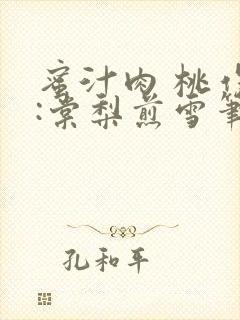 蜜汁肉桃作
:棠梨煎雪笔
孔和平